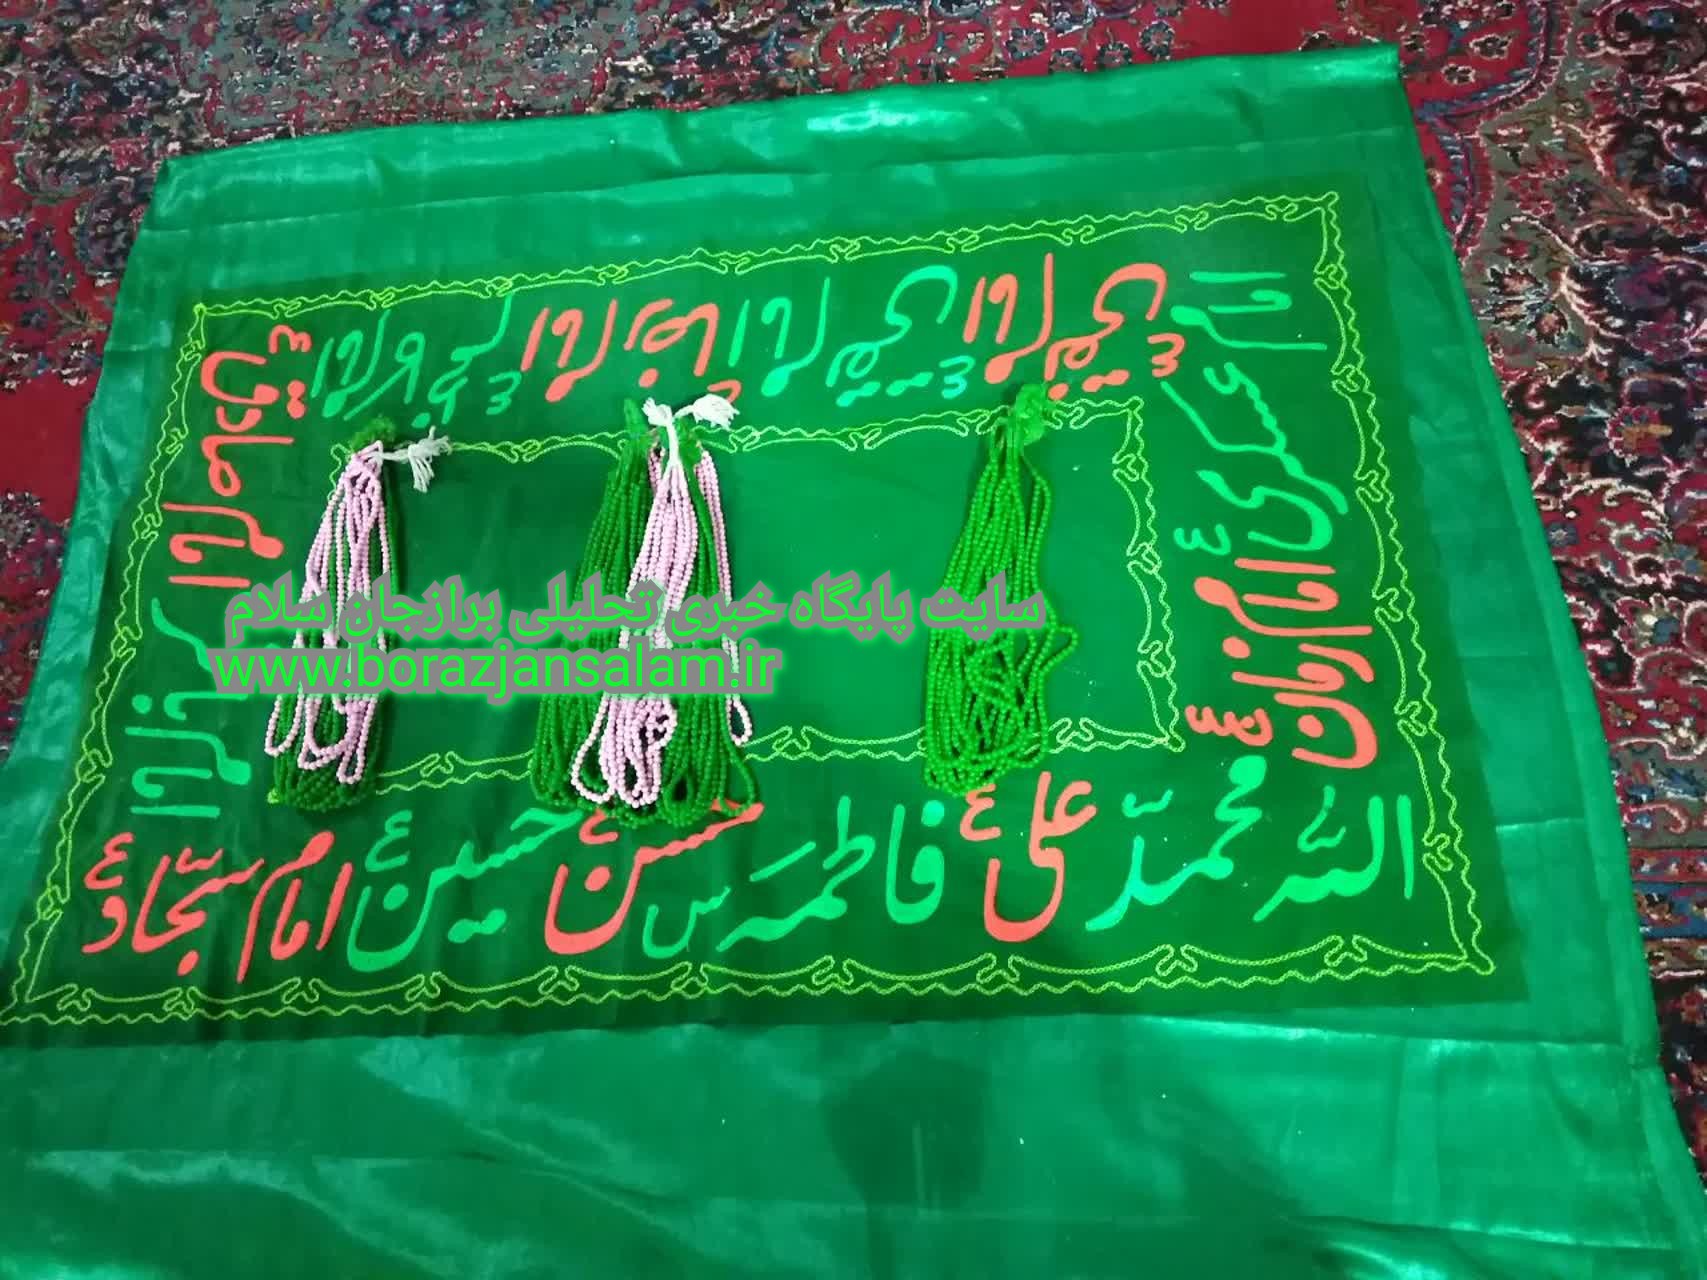 الله محمّد علی ع فاطمه س حسن ع حسین ع امام سجّاد ع
امام صادق ع
امام رضا ع امام تقی ع امام نقی ع
امام عسکری ع امام زمان عج
سایت پایگاه خبری تحلیلی برازجان سلام
www.borazjansalam.ir